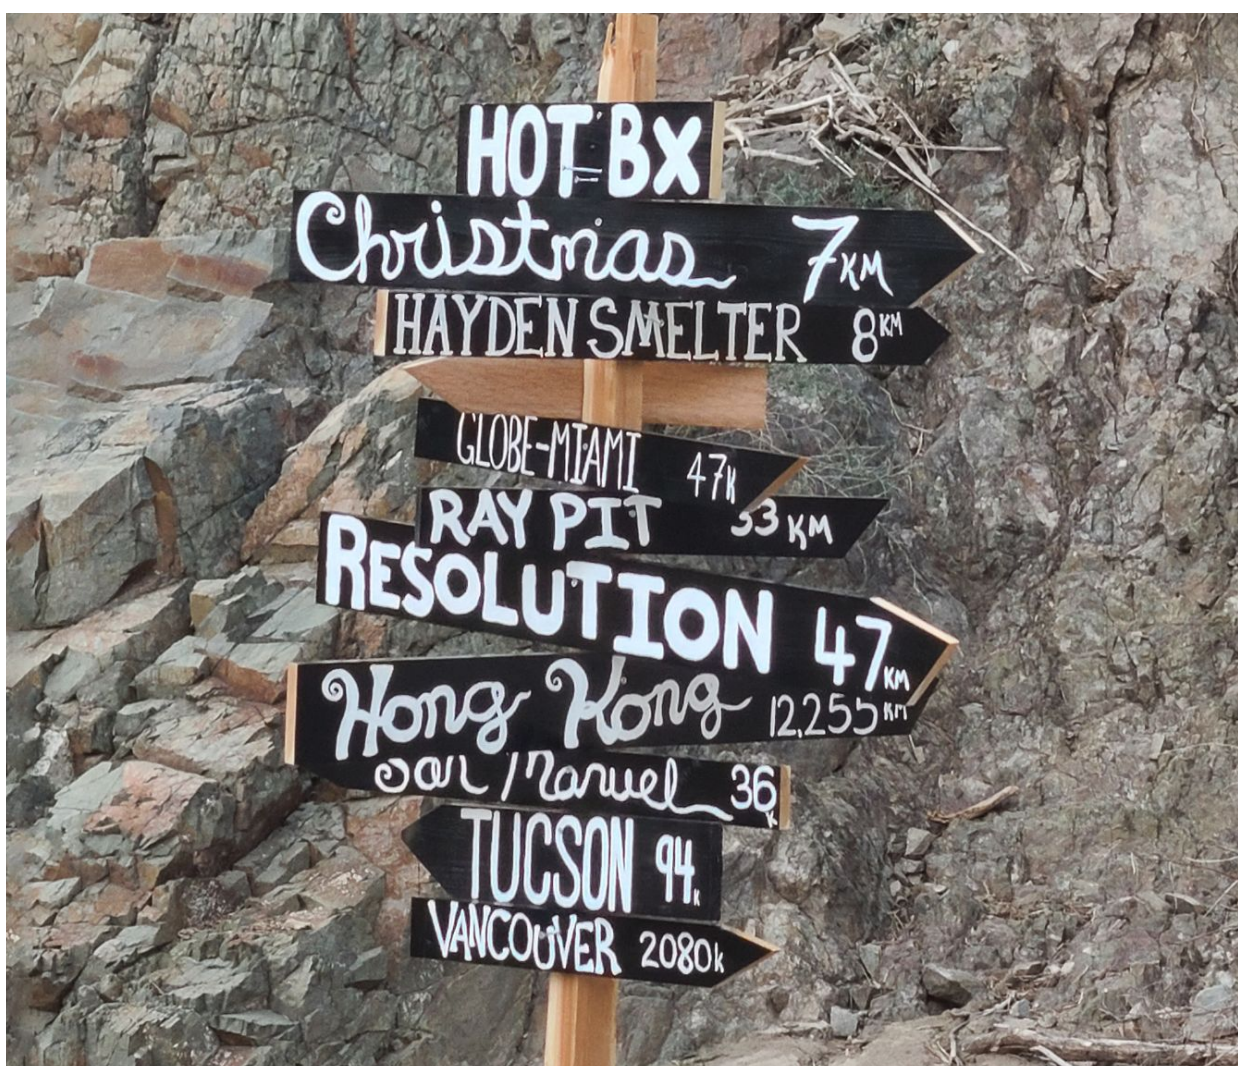 HOT BX
Christmas 7KM
HAYDEN SMELTER 8KM
GLOBE-MIAMI 47K
RAY PIT 33 KM
RESOLUTION 47 KM
Hong Kong 12,255 KM
San Manuel 36 K
TUCSON 94 K
VANCOUVER 2080k